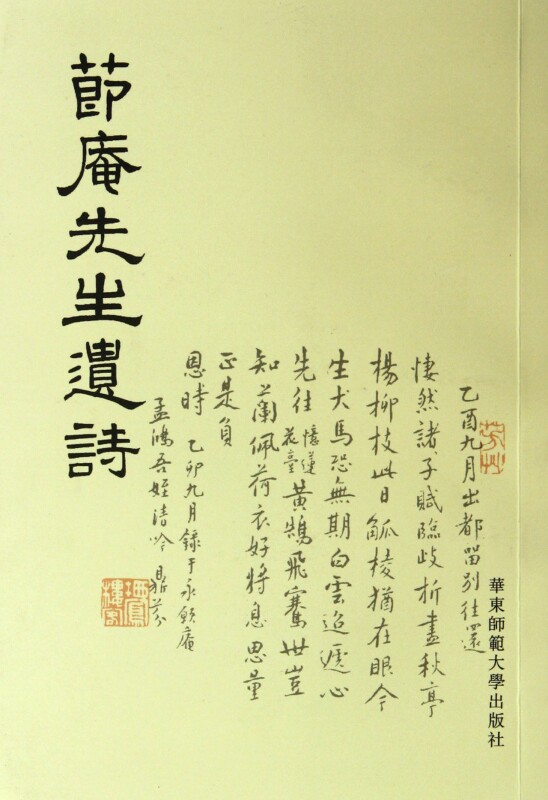 節庵先生遺詩
乙酉九月出都畱別往還
悽然諸子賦臨歧折盡秋亭
楊柳枝此日觚棱猶在眼今
生犬馬恐無期白雲迢遞心
先往憶蓮花臺黃鵠飛騫世豈
知蘭佩荷衣好將息思量
正是負
恩時 乙卯九月錄于永庵
孟鴻吾姪清吟 鼎芬
華東師範大學出版社